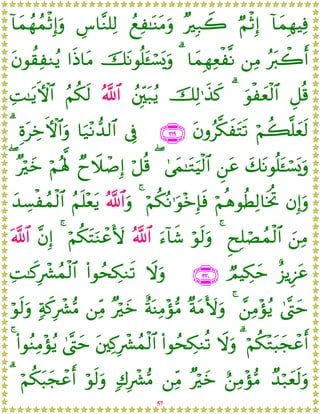 فِيهِمَآ إِثْمٌ كَبِيرٌ وَمَنَٰفِعُ لِلنَّاسِ وَإِثْمُهُمَآ
أَكْبَرُ مِن نَّفْعِهِمَا ۗ وَيَسْـَٔلُونَكَ مَاذَا يُنفِقُونَ
قُلِ ٱلْعَفْوَ ۗ كَذَٰلِكَ يُبَيِّنُ ٱللَّهُ لَكُمُ ٱلْـَٔايَٰتِ
لَعَلَّكُمْ تَتَفَكَّرُونَ ﴿٢١٩﴾ فِى ٱلدُّنْيَا وَٱلْـَٔاخِرَةِ ۗ
وَيَسْـَٔلُونَكَ عَنِ ٱلْيَتَٰمَىٰ ۖ قُلْ إِصْلَاحٌ لَّهُمْ خَيْرٌ ۖ
وَإِن تُخَالِطُوهُمْ فَإِخْوَٰنُكُمْ ۚ وَٱللَّهُ يَعْلَمُ ٱلْمُفْسِدَ
مِنَ ٱلْمُصْلِحِ ۚ وَلَوْ شَآءَ ٱللَّهُ لَأَعْنَتَكُمْ ۚ إِنَّ ٱللَّهَ
عَزِيزٌ حَكِيمٌ ﴿٢٢٠﴾ وَلَا تَنكِحُوا۟ ٱلْمُشْرِكَٰتِ
حَتَّىٰ يُؤْمِنَّ ۚ وَلَأَمَةٌ مُّؤْمِنَةٌ خَيْرٌ مِّن مُّشْرِكَةٍ وَلَوْ
أَعْجَبَتْكُمْ ۗ وَلَا تُنكِحُوا۟ ٱلْمُشْرِكِينَ حَتَّىٰ يُؤْمِنُوا۟ ۚ
وَلَعَبْدٌ مُّؤْمِنٌ خَيْرٌ مِّن مُّشْرِكٍ وَلَوْ أَعْجَبَكُمْ ۗ
57